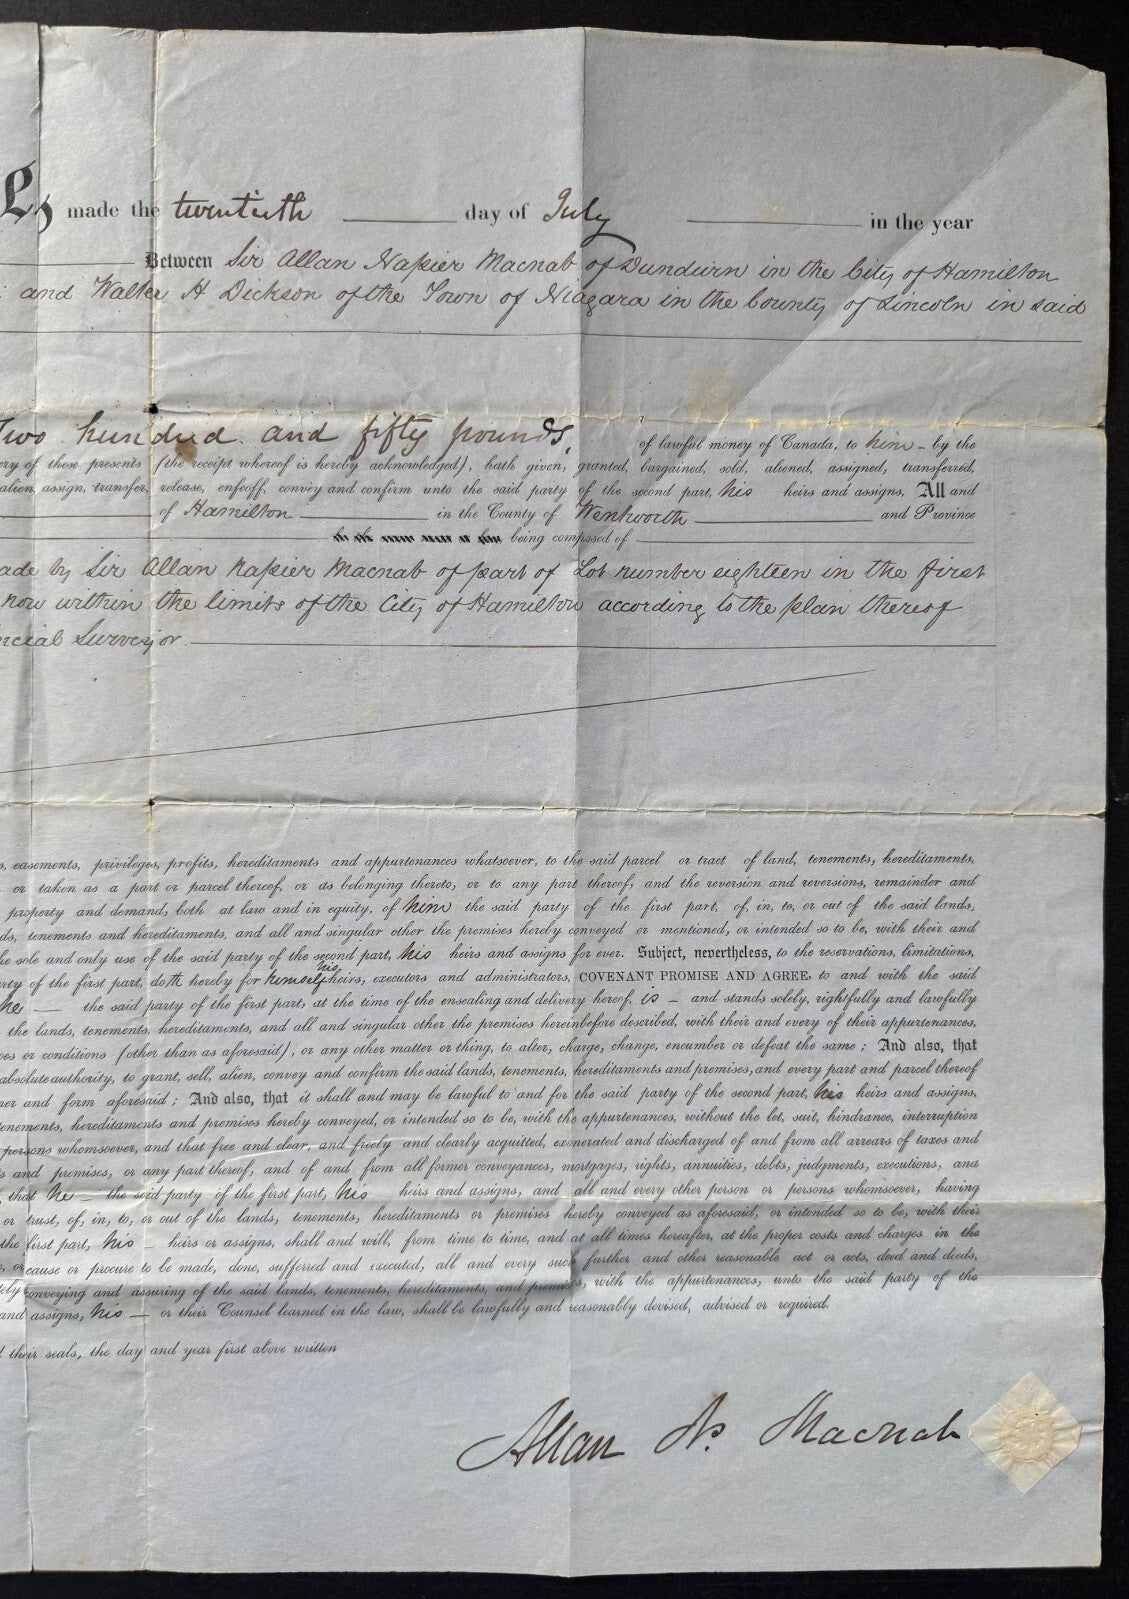 made the twentieth day of July in the year
Between Sir Allan Napier Macnab of Dundurn in the City of Hamilton
and Walter H Dickson of the Town of Niagara in the County of Lincoln in said
Two hundred and fifty pounds, of lawful money of Canada, to him - by the
ery of these presents (the receipt whereof is hereby acknowledged), hath given, granted, bargained, sold, aliened, assigned, transferred,
alien, assign, transfer, release, enfeoff, convey and confirm unto the said party of the second part, his heirs and assigns, All and
of Hamilton in the County of Wentworth and Province
being composed of
ade by Sir Allan Napier Macnab of part of Lot number eighteen in the first
now within the limits of the City of Hamilton according to the plan thereof
ncial Surveyor
s, easements, privileges, profits, hereditaments and appurtenances whatsoever, to the said parcel or tract of land, tenements, hereditaments,
or taken as a part or parcel thereof, or as belonging thereto, or to any part thereof, and the reversion and reversions, remainder and
property and demand, both at law and in equity, of him the said party of the first part, of, in, to, or out of the said lands,
ds, tenements and hereditaments, and all and singular other the premises hereby conveyed or mentioned, or intended so to be, with their and
he sole and only use of the said party of the second part, his heirs and assigns for ever. Subject, nevertheless, to the reservations, limitations,
rty of the first part, doth hereby for himself his heirs, executors and administrators, COVENANT PROMISE AND AGREE, to and with the said
he — the said party of the first part, at the time of the ensealing and delivery hereof, is — and stands solely, rightfully and lawfully
the lands, tenements, hereditaments, and all and singular other the premises hereinbefore described, with their and every of their appurtenances,
ces or conditions (other than as aforesaid), or any other matter or thing, to alter, charge, change, encumber or defeat the same; And also, that
absolute authority, to grant, sell, alien, convey and confirm the said lands, tenements, hereditaments and premises, and every part and parcel thereof
ner and form aforesaid; And also, that it shall and may be lawful to and for the said party of the second part, his heirs and assigns,
tenements, hereditaments and premises hereby conveyed, or intended so to be, with the appurtenances, without the let, suit, hindrance, interruption
persons whomsoever, and that free and clear, and freely and clearly acquitted, exonerated and discharged of and from all arrears of taxes and
s and premises, or any part thereof, and of and from all former conveyances, mortgages, rights, annuities, debts, judgments, executions, and
, that he — the said party of the first part, his heirs and assigns, and all and every other person or persons whomsoever, having
or trust, of, in, to, or out of the lands, tenements, hereditaments or premises hereby conveyed as aforesaid, or intended so to be, with their
the first part, his — heirs or assigns, shall and will, from time to time, and at all times hereafter, at the proper costs and charges in the
e, or cause or procure to be made, done, suffered and executed, all and every such further and other reasonable act or acts, deed and deeds,
tely conveying and assuring of the said lands, tenements, hereditaments, and premises, with the appurtenances, unto the said party of the
and assigns, his — or their Counsel learned in the law, shall be lawfully and reasonably devised, advised or required.
their seals, the day and year first above written
Allan N. Macnab